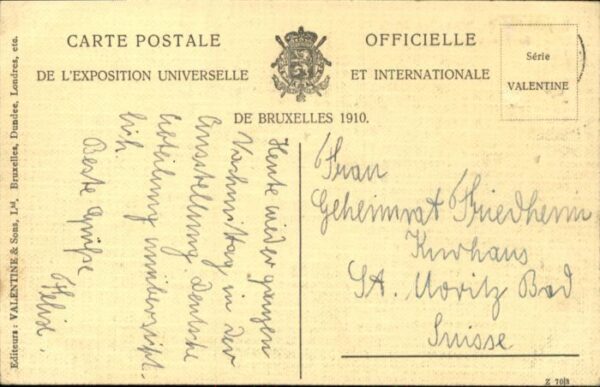 CARTE POSTALE OFFICIELLE
DE L'EXPOSITION UNIVERSELLE ET INTERNATIONALE
DE BRUXELLES 1910.
Série
VALENTINE
Editeurs: VALENTINE & Sons, Ltd, Bruxelles, Dundee, Londres, etc.
Heute wieder ganzen
Nachmittag in der
Ausstellung. Deutsche
Abteilung
lich.
Beste Grüße
Frau
Geheimrat Friedheim
Kurhaus
St. Moritz Bad
Suisse
Z 70